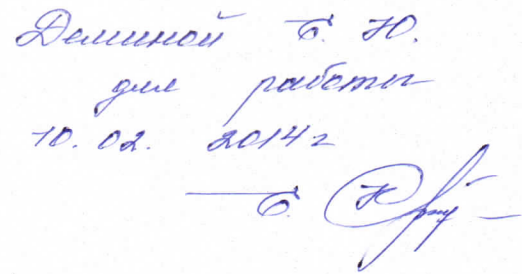 Деминой Б. Ю.
для работы
10.02. 2014г
Б.